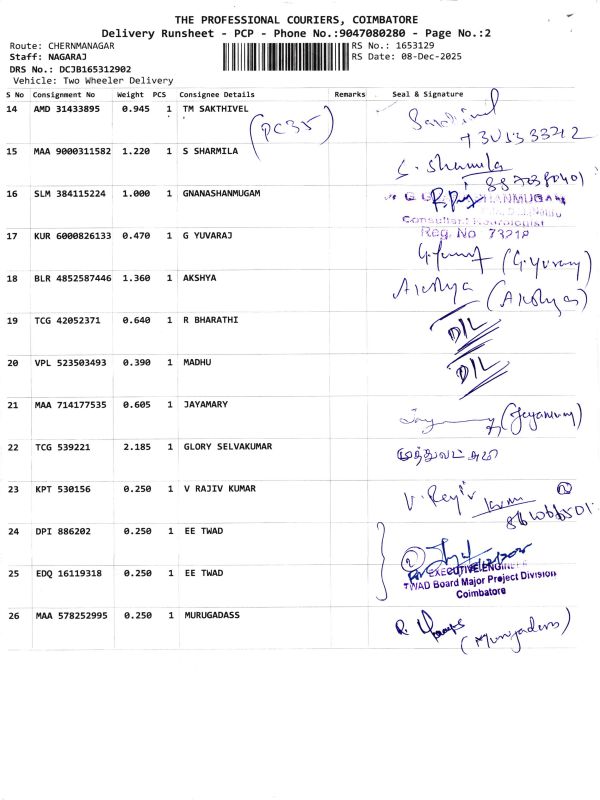 THE PROFESSIONAL COURIERS, COIMBATORE
Delivery Runsheet - PCP - Phone No.:9047080280 - Page No.:2
Route: CHERNMANAGAR RS No.: 1653129
Staff: NAGARAJ RS Date: 08-Dec-2025
DRS No.: DCJB165312902
Vehicle: Two Wheeler Delivery
S No Consignment No Weight PCS Consignee Details Remarks Seal & Signature
14 AMD 31433895 0.945 1 TM SAKTHIVEL
(PC35)
15 MAA 9000311582 1.220 1 S SHARMILA S. Sharmila
16 SLM 384115224 1.000 1 GNANASHANMUGAM
Reg. No 73218
17 KUR 6000826133 0.470 1 G YUVARAJ (G.Yuvaraj)
18 BLR 4852587446 1.360 1 AKSHYA Akshya
19 TCG 42052371 0.640 1 R BHARATHI D/L
20 VPL 523503493 0.390 1 MADHU D/L
21 MAA 714177535 0.605 1 JAYAMARY (Jayamary)
22 TCG 539221 2.185 1 GLORY SELVAKUMAR
23 KPT 530156 0.250 1 V RAJIV KUMAR
24 DPI 886202 0.250 1 EE TWAD
25 EDQ 16119318 0.250 1 EE TWAD
EXECUTIVE ENGINEER
TWAD Board Major Project Division
Coimbatore
26 MAA 578252995 0.250 1 MURUGADASS